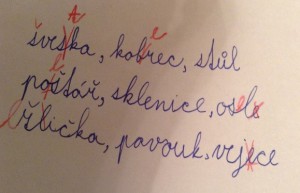 švska, kobrec, stůl
poštář, sklenice, osle
žlička, pavouk, vejece